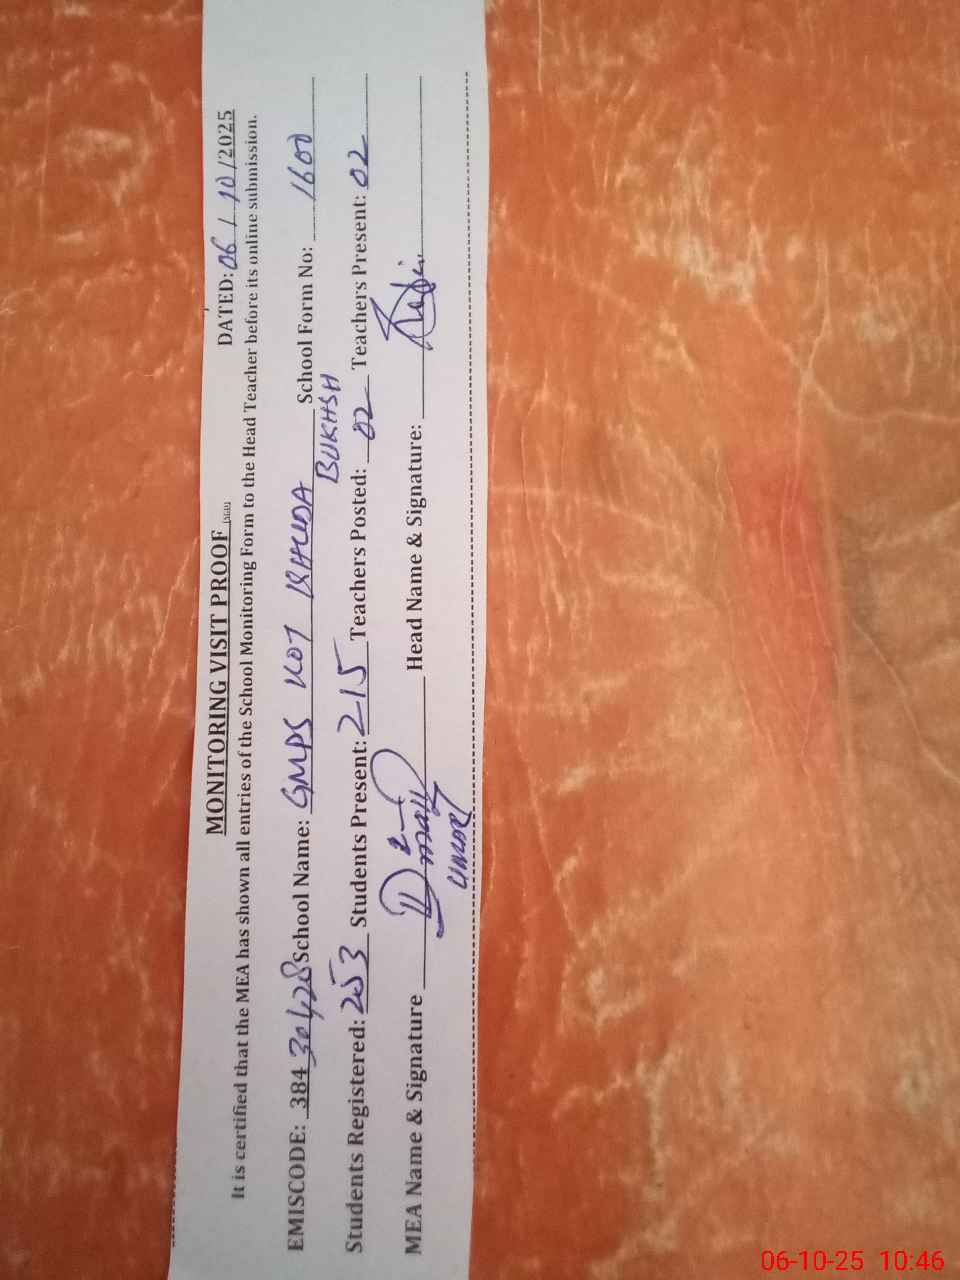 MONITORING VISIT PROOF
DATED: 06 / 10 /2025
It is certified that the MEA has shown all entries of the School Monitoring Form to the Head Teacher before its online submission.
EMISCODE: 384 School Name: GMPS KOT KHUDA BUKHSH School Form No: 1600
Students Registered: 253 Students Present: 215 Teachers Posted: 02 Teachers Present: 02
MEA Name & Signature Head Name & Signature:
06-10-25 10:46